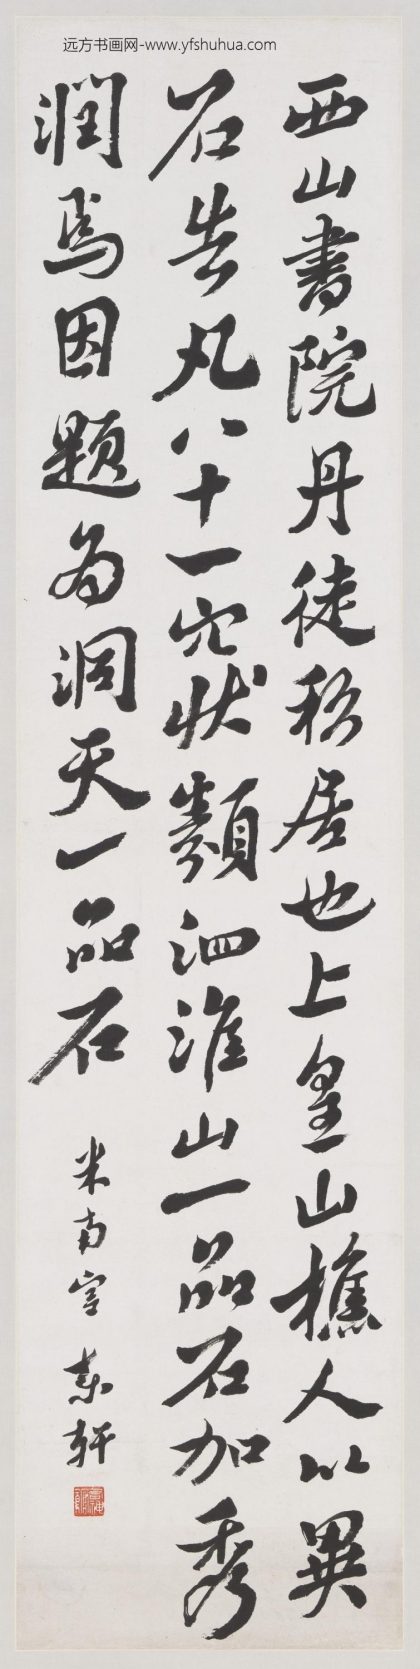 远方书画网-www.yfshuhua.com
西山書院丹徒私居也上皇山樵人以異
石告凡八十一穴狀類泗淮山一品石加秀
潤焉因題為洞天一品石
米南宮 素軒